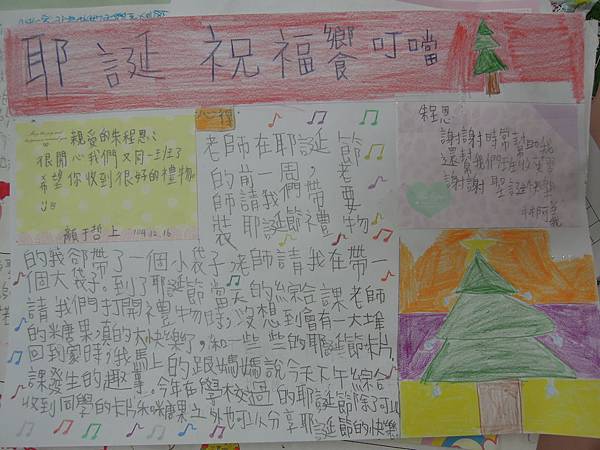 耶誕祝福饗叮噹
親愛的朱程恩:
很開心我們又同一班了
希望你收到很好的禮物
顏于哲上 104.12.16
心得
老師在耶誕節
的前一周,老
師請我們帶要
裝耶誕節禮物
的我卻帶了一個小袋子,老師請我在帶一
個大袋子。到了耶誕節當天的綜合課老師
請我們打開禮物時,沒想到會有一大堆
的糖果真的太快樂了,和一些些的耶誕節卡片,
回到家時,我馬上的跟媽媽說今天下午綜合
課發生的趣事。今年在學校過的耶誕節除了可以
收到同學的卡片糖果之外也可以分享耶誕節的快樂
朱程恩
謝謝時常幫助我
謝謝 聖誕快樂